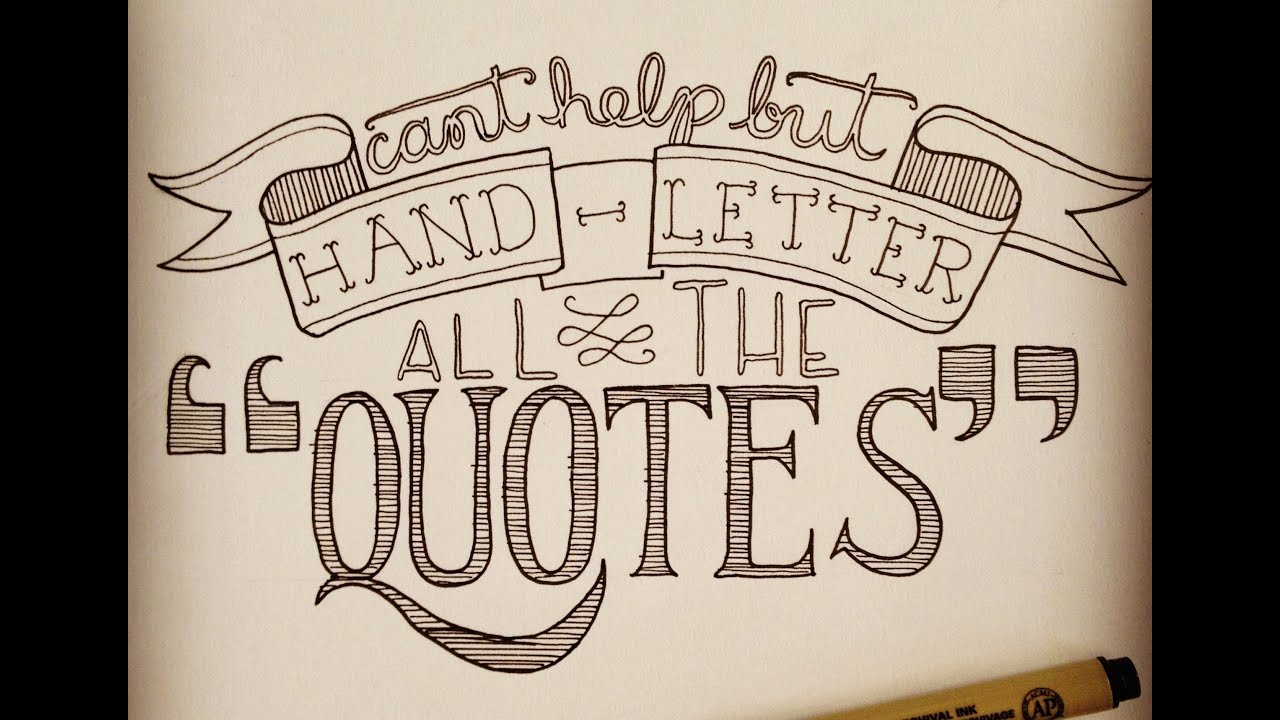 cant help but
HAND-LETTER
ALL THE
“QUOTES”
ARCHIVAL INK
AP